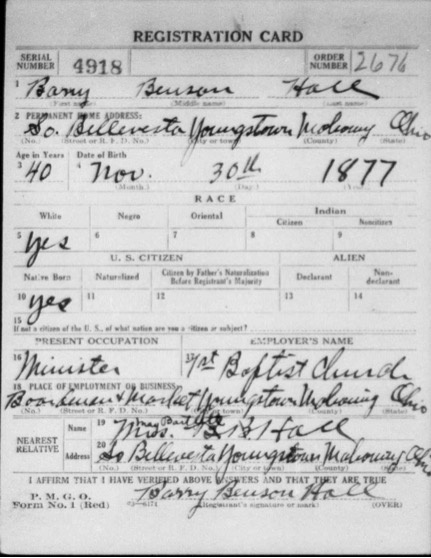 REGISTRATION CARD
SERIAL NUMBER 4918 ORDER NUMBER 2676
1 Barry Benson Hall
(First name) (Middle name) (Last name)
2 PERMANENT HOME ADDRESS:
So. Bellevesta Youngstown Mahoning Ohio
(No.) (Street or R. F. D. No.) (City or town) (County) (State)
Age in Years Date of Birth
3 40 4 Nov. 30th 1877
(Month.) (Day.) (Year.)
RACE
White Negro Oriental Indian
Citizen Noncitizen
5 yes 6 7 8 9
U. S. CITIZEN ALIEN
Native Born Naturalized Citizen by Father's Naturalization Before Registrant's Majority Declarant Non-declarant
10 yes 11 12 13 14
15
If not a citizen of the U. S., of what nation are you a citizen or subject?
PRESENT OCCUPATION EMPLOYER'S NAME
16 Minister 17 1st Baptist Church
18 PLACE OF EMPLOYMENT OR BUSINESS:
Boardman & Market Youngstown Mahoning Ohio
(No.) (Street or R. F. D. No.) (City or town) (County) (State)
NEAREST RELATIVE Name 19 Mrs. B B Hall
Address 20 So Bellevesta Youngstown Mahoning Ohio
(No.) (Street or R. F. D. No.) (City or town) (County) (State)
I AFFIRM THAT I HAVE VERIFIED ABOVE ANSWERS AND THAT THEY ARE TRUE
P. M. G. O.
Form No. 1 (Red) Barry Benson Hall
(Registrant's signature or mark) (OVER)